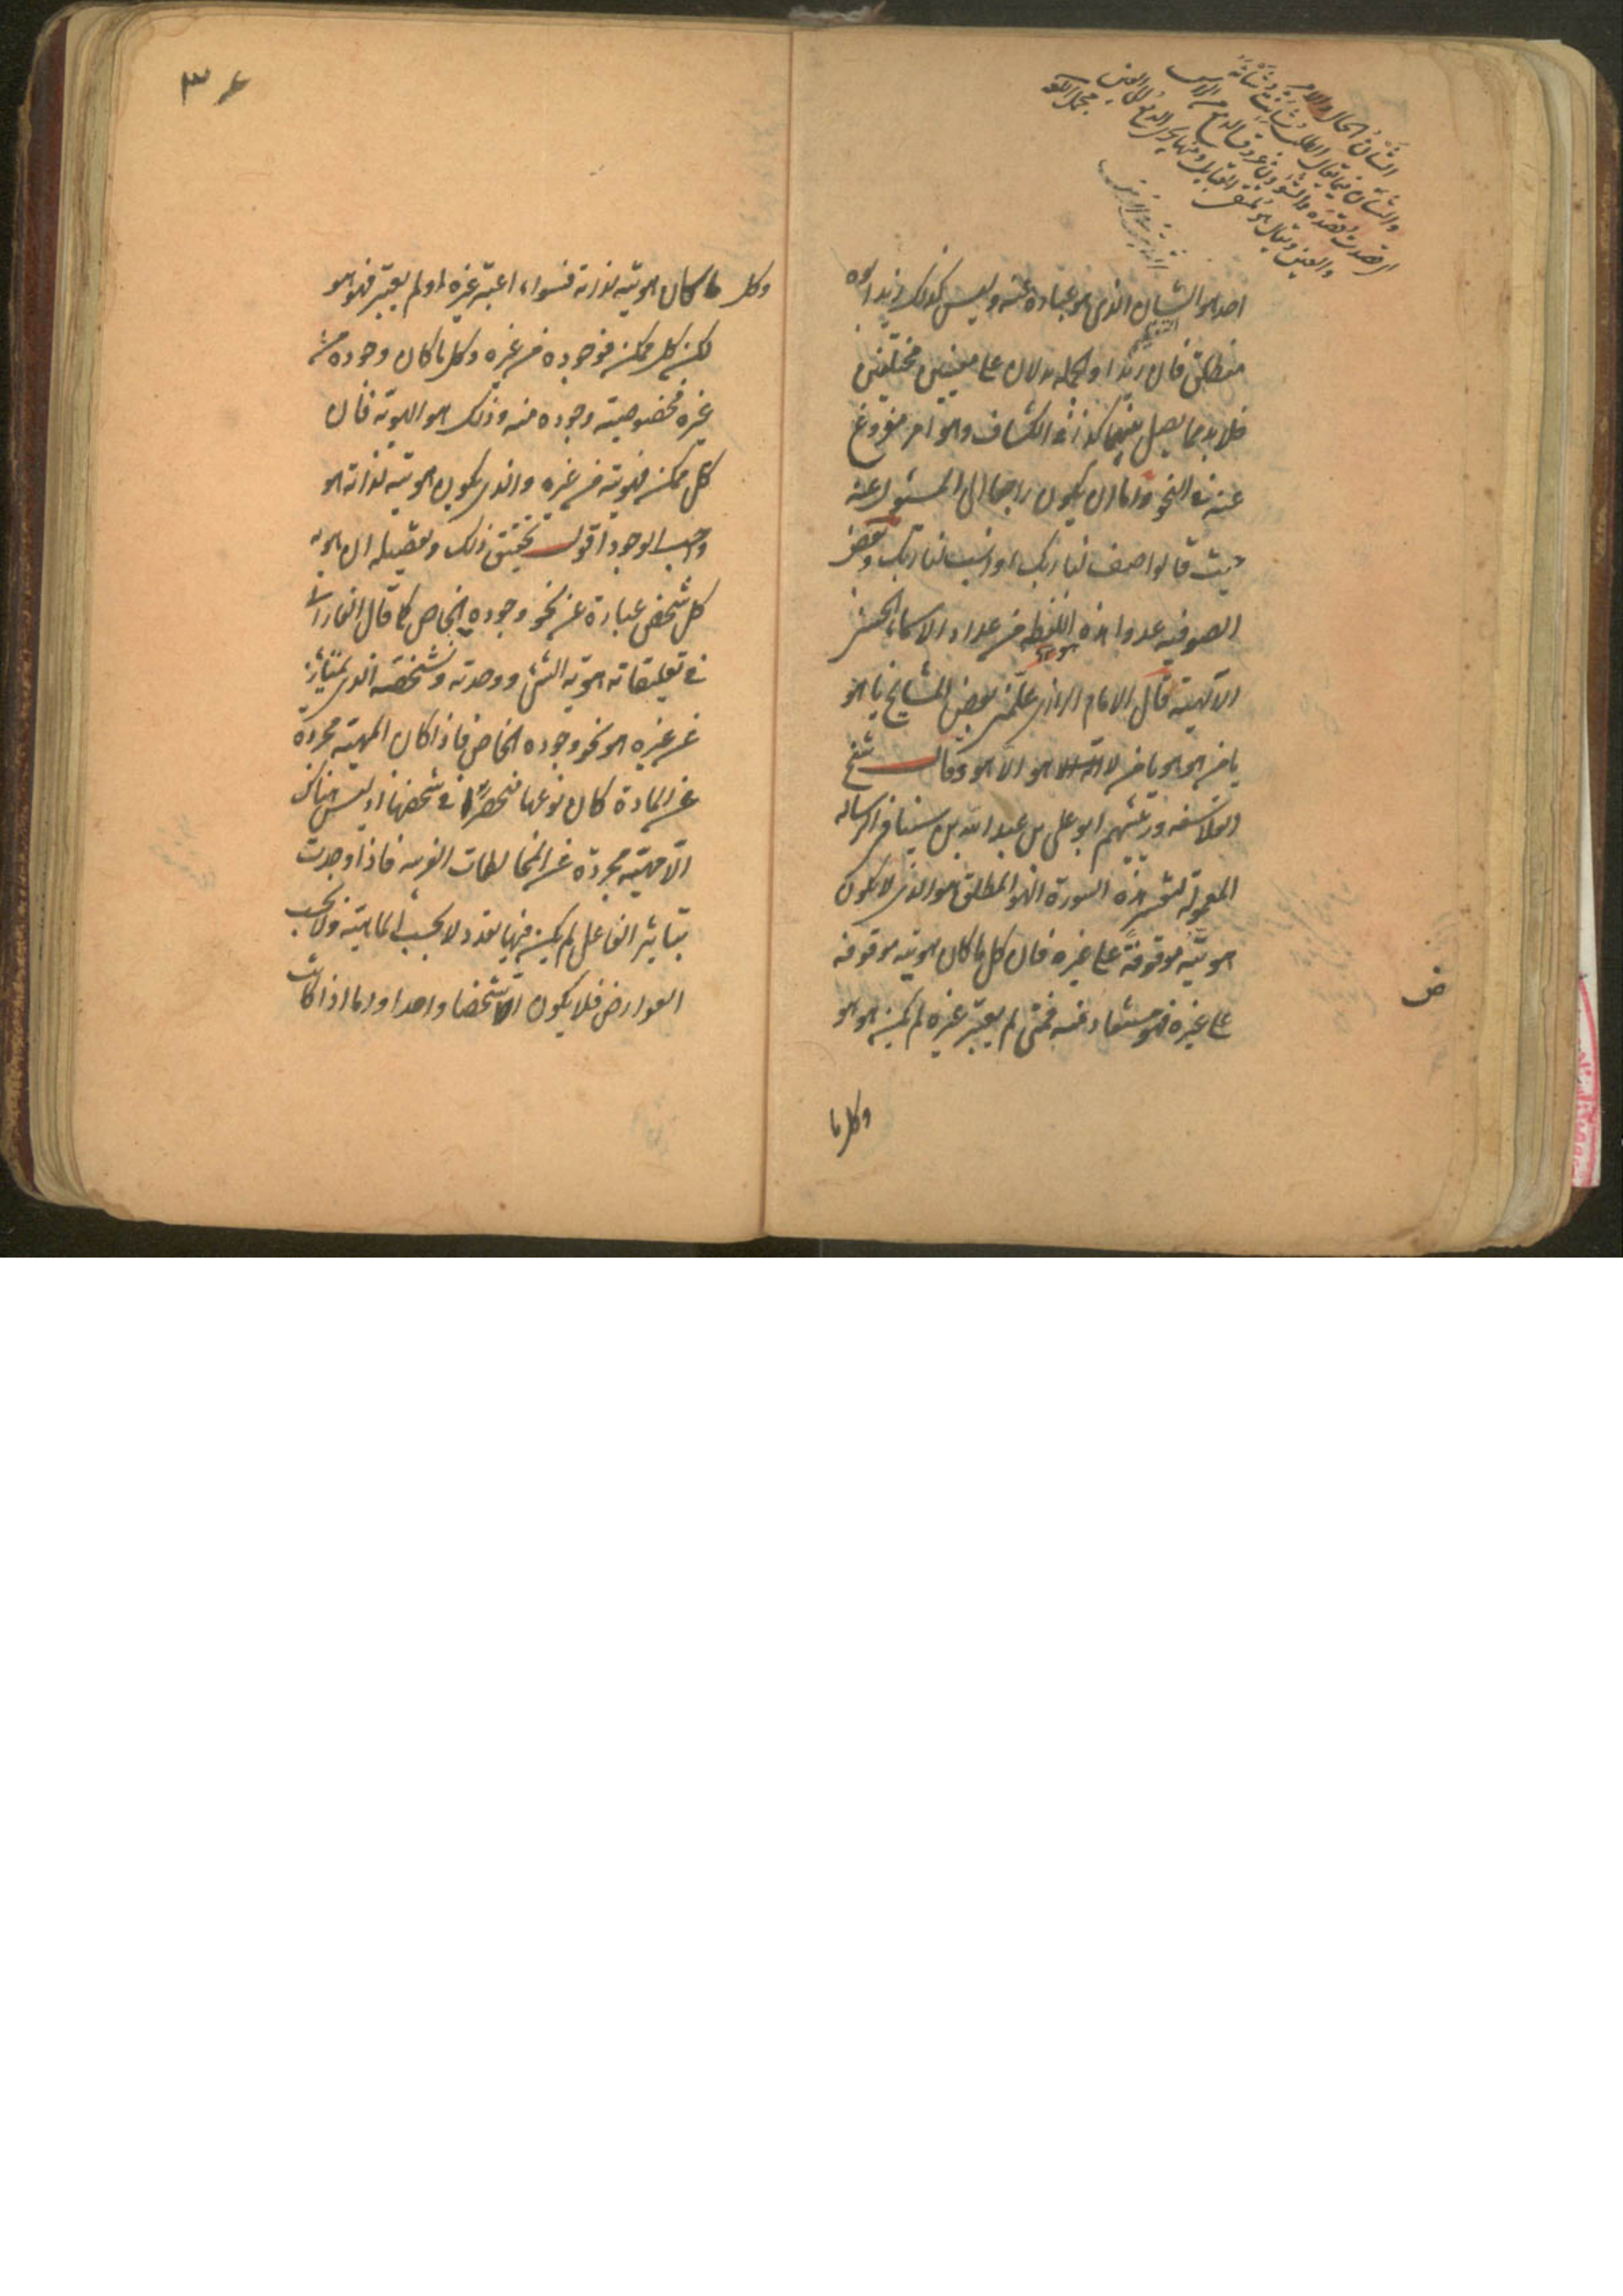 الشأن الحال والامر
والشأن فيما يقال الطلب شأنت شأنه
اى قصدت قصده والشؤون عروق الدمع من الراس
والعين ويقال هو ملتقى القبايل ومنها يجئ الدمع الى العين
مجمل اللغة
احد هو الشان الذى هو عبارة عنه وليس كذلك زيد ابوه
منطلق فان زيدا والجملة يدلان على معنيين مختلفين
فلا بد مما يصل بينهما كذا فى الكشاف وهو امر مفروغ
عنه فى النحو واما ان يكون راجعا الى المسئول عنه
حيث قالوا صف لنا ربك او انسب لنا ربك وبعض
الصوفيه عدوا هذه اللفظه من عداد الاسماء الحسنى
الآلهيّة قال الامام الرازى علّمنى بعض المشايخ يا هو
يا من هو هو يا من لا اله الا هو وقال شيخ
الفلاسفه ورئيسهم ابو على بن عبد الله بن سينا فى الرسالة
المعمولة لتفسير هذه السورة الهو المطلق هو الذى لا يكون
هويّته موقوفة على غيره فان كل ما كان هويته موقوفه
على غيره فهو مستفاد عنه فمتى لم يعتبر غيره لم يكن هو هو
وكل ما
ض
٣٤
وكل ما كان هويته لذاته فسواء اعتبر غيره او لم يعتبر فهو هو
لكن كل ممكن فوجوده من غيره وكل ما كان وجوده من
غيره فخصوصية وجوده منه وذلك هو الهوية فان
كل ممكن فهويته من غيره والذى يكون هويته لذاته هو
واجب الوجود اقول تحقيق ذلك وتفصيله ان هويه
كل شخص عبارة عن نحو وجوده الخاص كما قال الفارابى
فى تعليقاته هوية الشئ ووحدته وتشخصه الذى يمتاز به
عن غيره هو نحو وجوده الخاص فاذا كان المهية مجردة
عن المادة كان نوعها منحصرا فى شخصها اذ ليس هناك
الّا مهيّة مجردة عن المخالطات الغريبه فاذا وجدت
بتأثير الفاعل لم يكن فيها تعدد لا بحسب الماهية ولا بحسب
العوارض فلا يكون الا شخصا واحدا واما اذا كانت